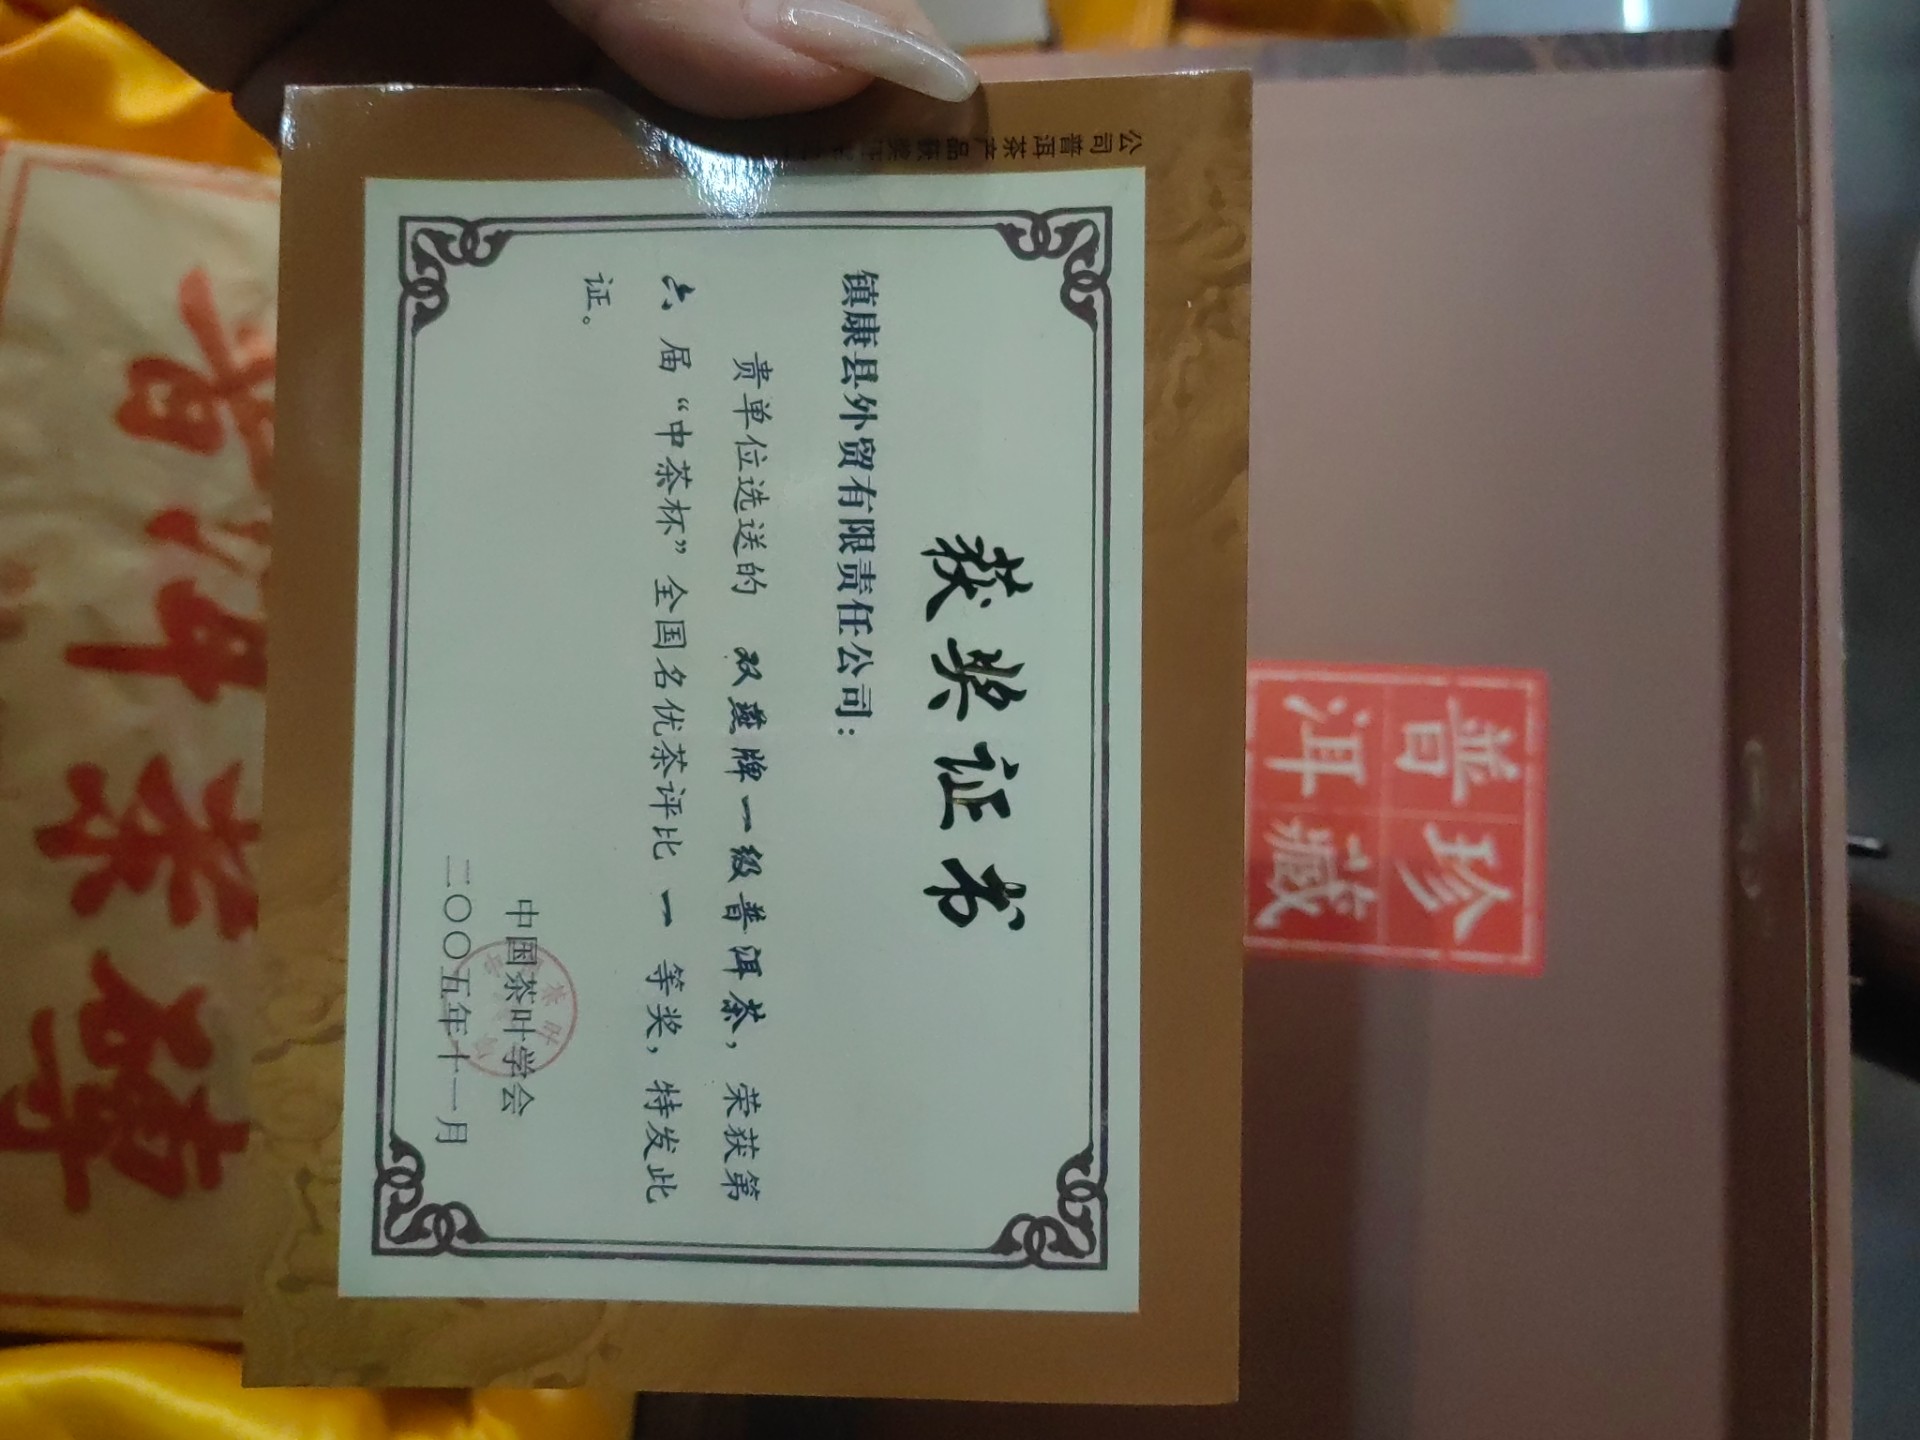 公司普洱茶产品获奖证
获奖证书
镇康县外贸有限责任公司：
贵单位选送的 双燕牌一级普洱茶，荣获第
六届“中茶杯”全国名优茶评比 一 等奖，特发此
证。
中国茶叶学会
二〇〇五年十一月
普洱
珍藏
普洱茶砖